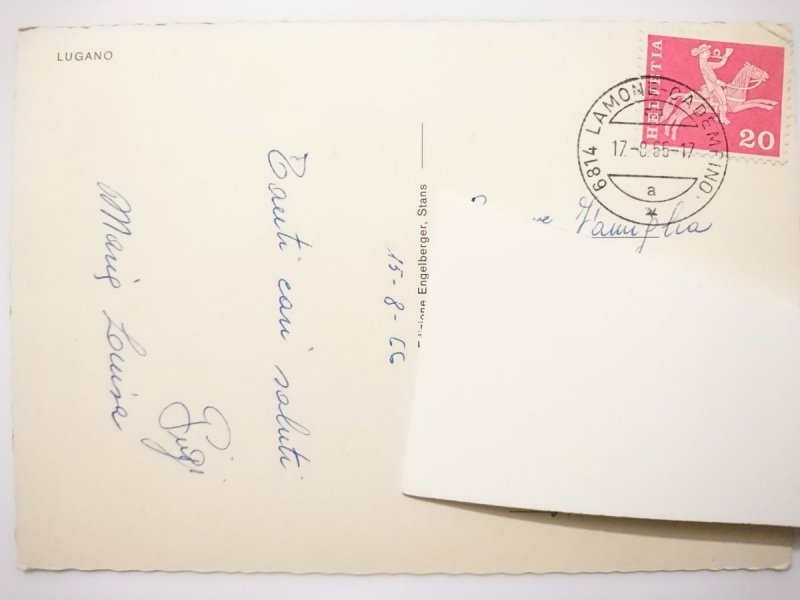 LUGANO
HELVETIA
20
6814 LAMONE-CADEMPINO
17.-8.66-17
a
Famiglia
Edizione Engelberger, Stans
15-8-66
Tanti cari saluti
Gigi
Maria Luisa